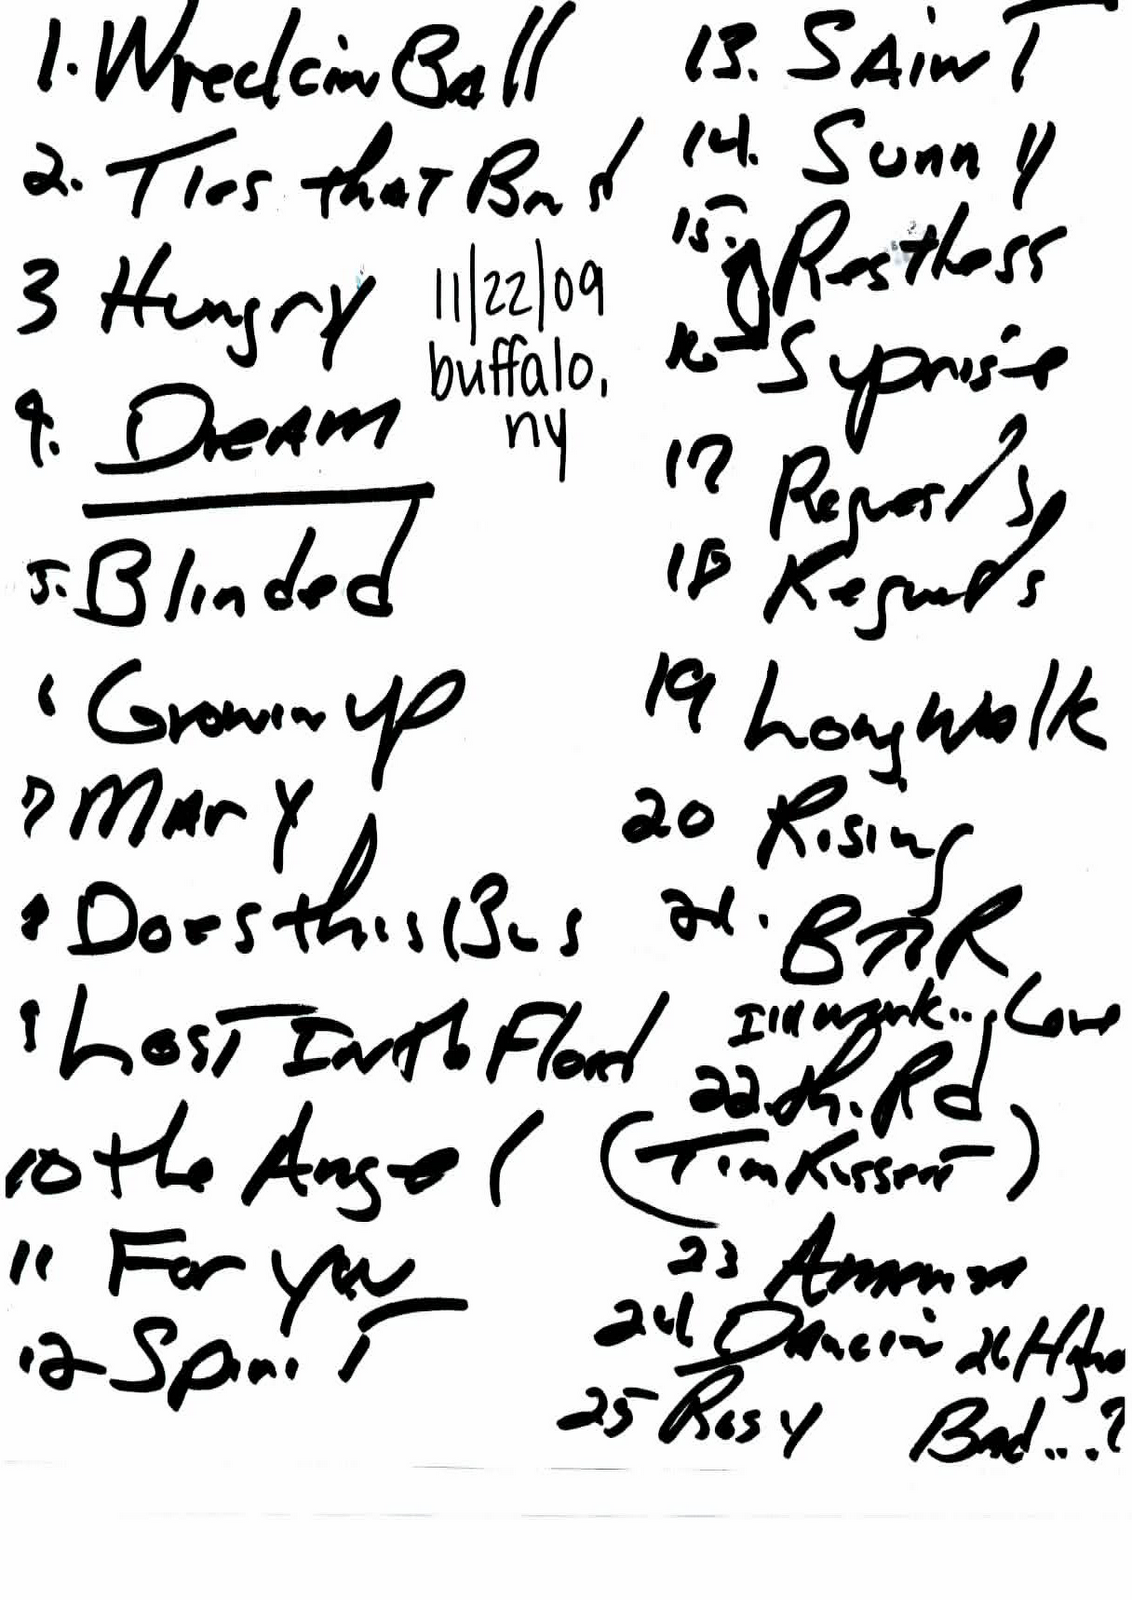 1. Wreckin Ball
2. Ties that Bind
3 Hungry
11/22/09
buffalo,
ny
4. Dream
5. Blinded
6 Growin up
7 Mary
8 Does this Bus
9 Lost In the Flood
10 the Angel
11 For you
12 Spirit
13. Saint
14. Sunny
15. Restless
16 Suprise
17 Requests
18 Requests
19 Long Walk
20 Rising
21. BTR
I'll work... Love
22. th. Rd
(Tim Russert)
23 American
24 Dancin
25 Rosy
26 Higher
Bad...?